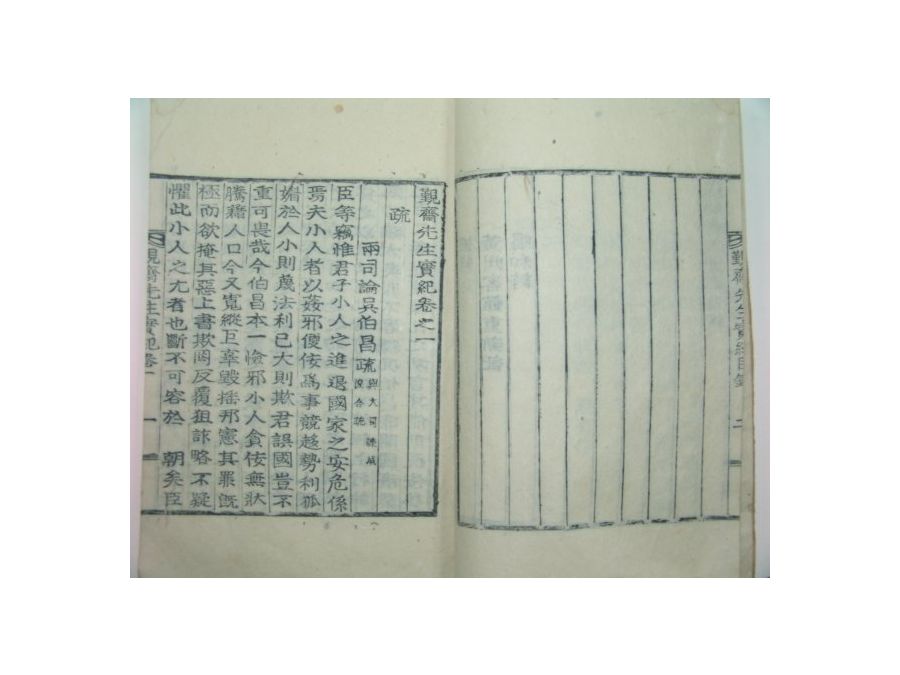 覲齋先生實紀目錄
二
覲齋先生實紀卷之一
疏
兩司論吳伯昌疏 與大司諫成
合疏
臣等竊惟君子小人之進退國家之安危係
焉夫小人者以姦邪便佞爲事競趍勢利狐
媚於人小則蔑法利己大則欺君誤國豈不
重可畏哉今伯昌本一憸邪小人貪佞無狀
騰籍人口今又寬縱巨辜毁撓邦憲其罪旣
極而欲掩其惡上書欺罔反覆狙詐略不疑
懼此小人之尤者也斷不可容於 朝矣臣
覲齋先生實紀卷一
一